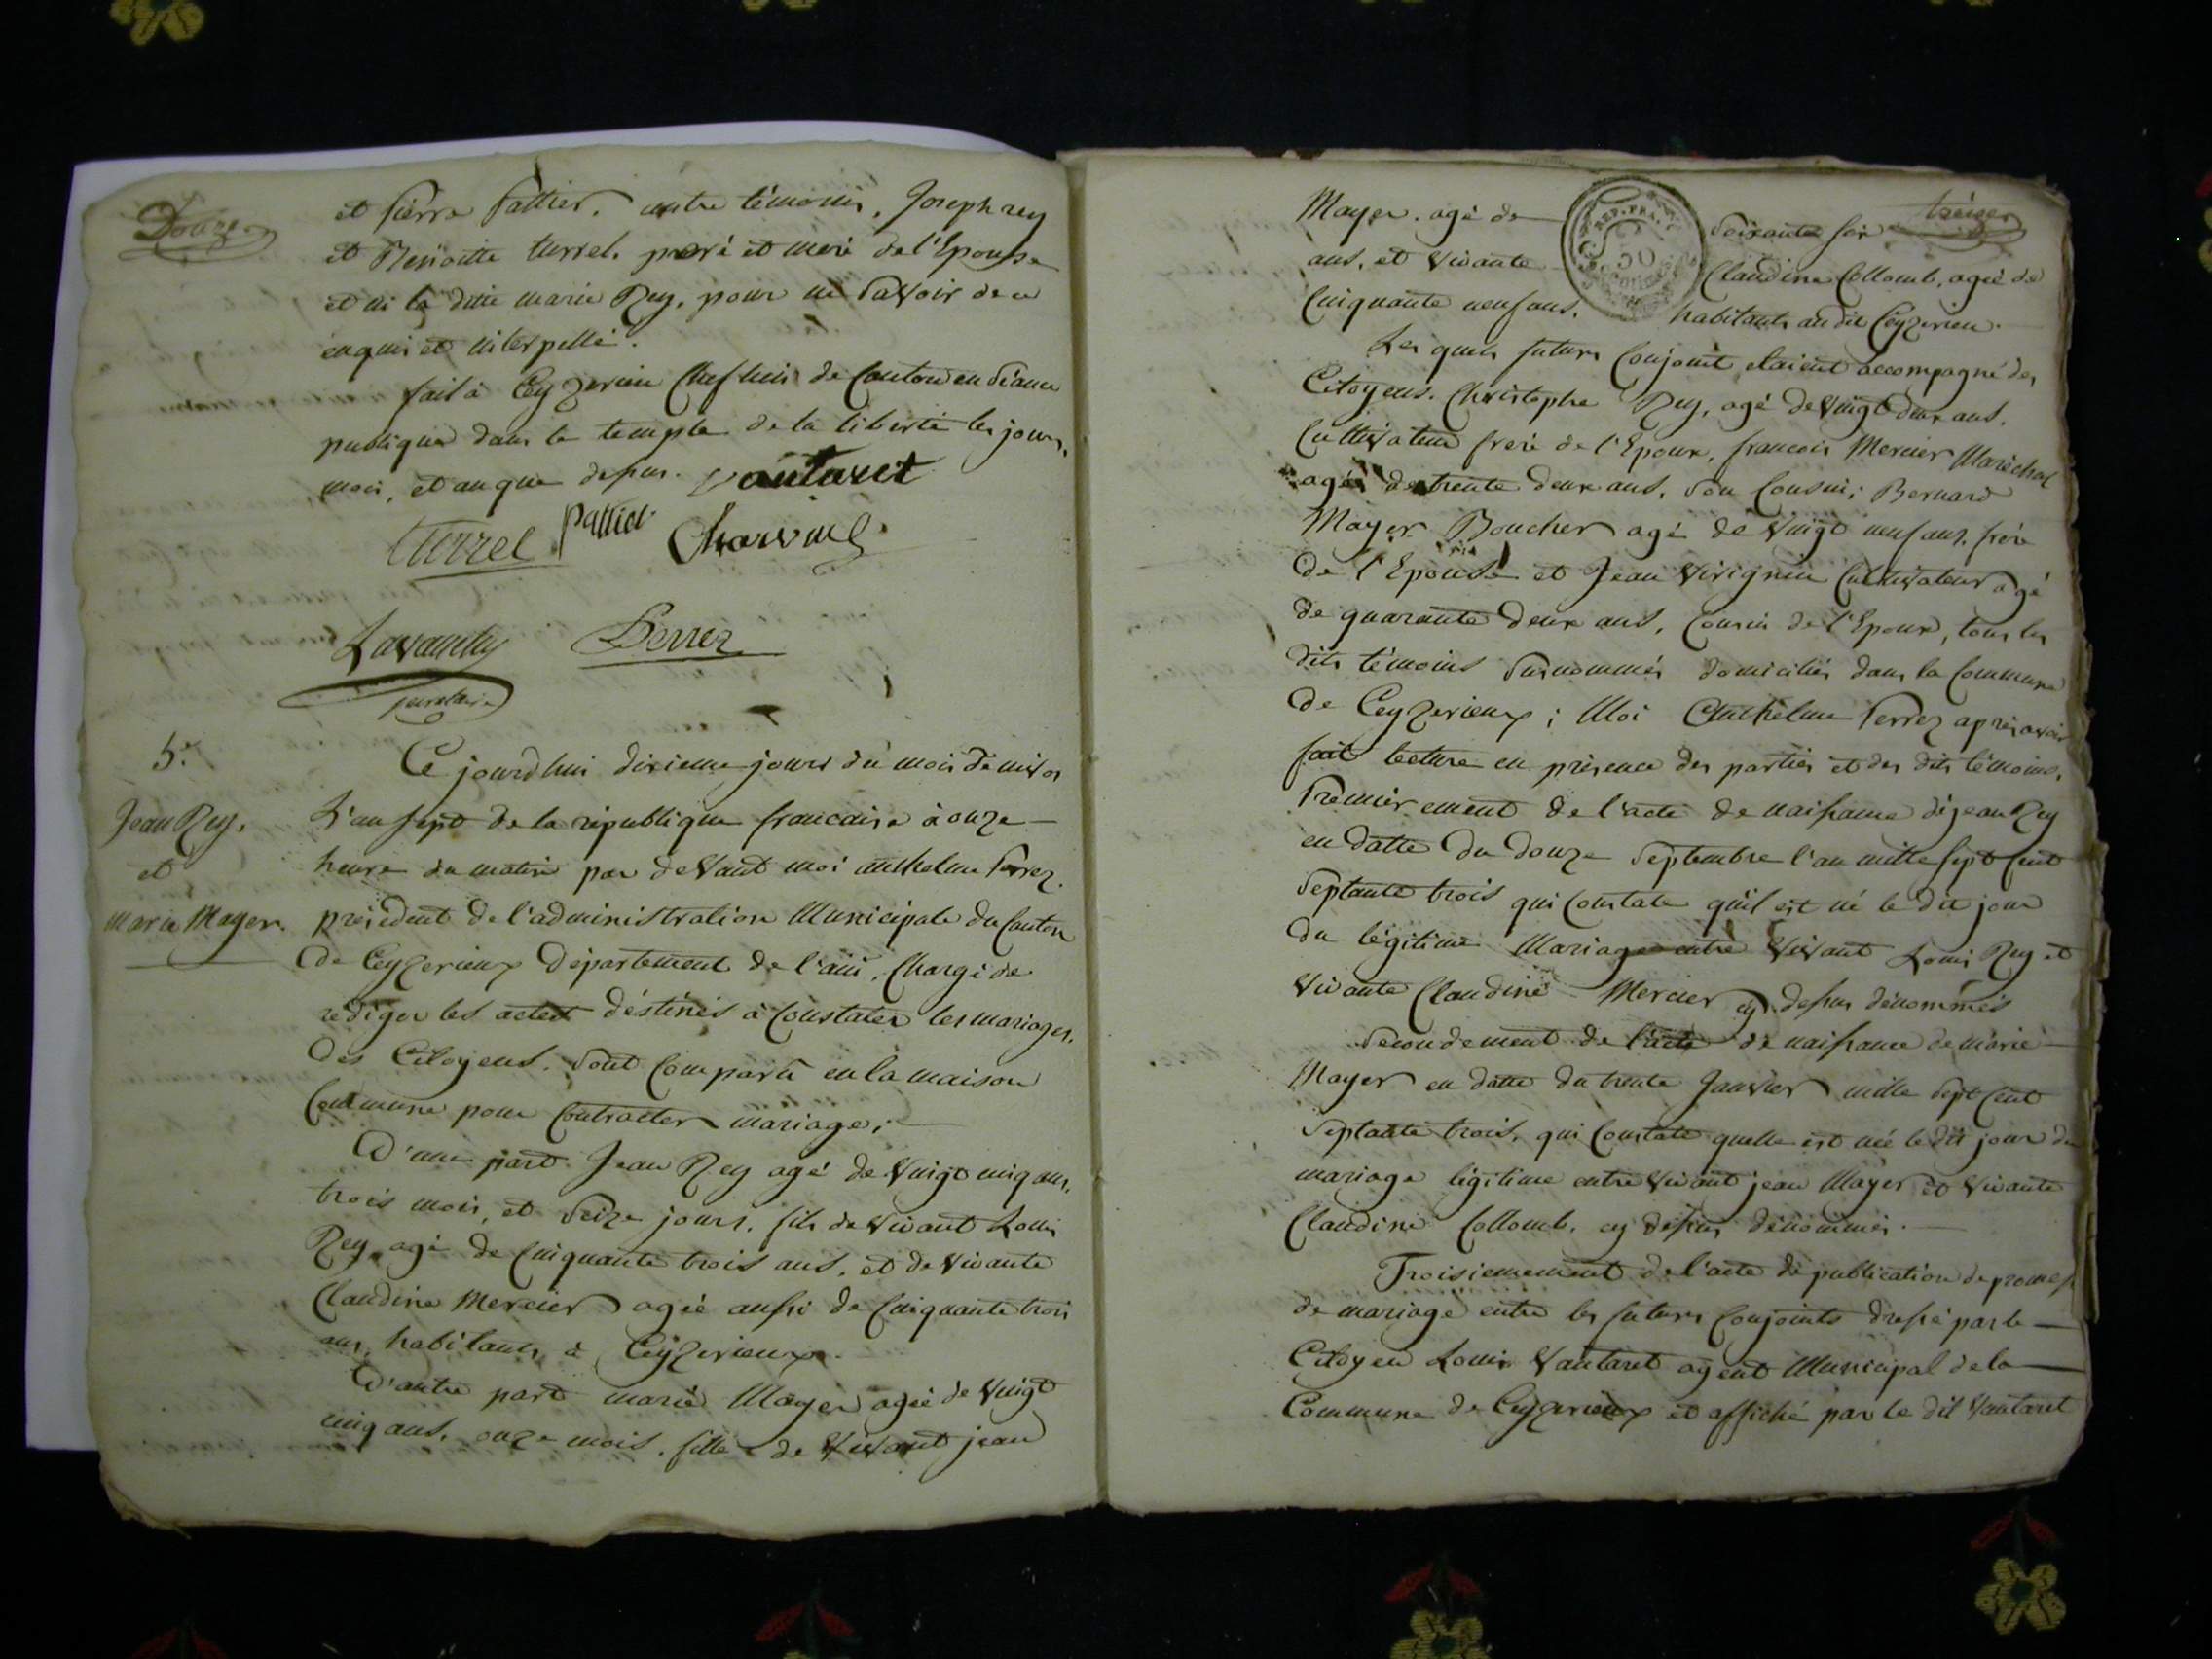 Douze
et Pierre Pattier. autre témoin, Joseph rey
et Benoitte turrel. pere et mere de l'Epouse
et ni la ditte marie Rey, pour ne Savoir de ce
enquis et interpellé.
fait à Ceyzerieu Chef lieu de Canton en Séance
publique dans le temple de la liberté les jour,
mois, et an que dessus. vautaret
turrel Pattier
Perrez
Secretaire
5.e
Jean Rey,
et
Marie Mayer.
Ce jourdhui dixieme jours du mois de nivos
L'an Sept de la république francaise à onze
heure du matin par devant moi anthelme Perrez.
président de l'administration Municipale du Canton
de Ceyzerieux département de l'ain, Chargé de
rédiger les actes déstinés à Constater les mariages,
des Citoyens. Sont Comparu en la maison
Commune pour Contracter mariage;
D'une part Jean Rey agé de vingt cinq ans,
trois mois, et Seize jours, fils de vivant Louis
Rey agé de Cinquante trois ans, et de vivante
Claudine Mercier agée aussi de Cinquante trois
ans, habitants à Ceyzerieux.
D'autre part marie Mayer agée de vingt
cinq ans, onze mois, fille de vivant jean
treize
Mayer. agé de Soixante six
REP. FRA.
50
ans, et vivante Claudine Collomb, agée de
Cinquante neuf ans. habitants au dit Ceyzerieu.
Les quels futurs Conjoint etaient accompagné des
Citoyens. Christophe Rey, agé de vingt deux ans.
Cultivateur frere de l'Epoux, francois Mercier Maréchal
agé de trente deux ans, Son Cousin; Bernard
Mayer Boucher agé de vingt neuf ans, frere
de l'Epouse et Jean Virignin Cultivateur agé
de quarante deux ans, Cousin de l'Epoux, tous les
dits témoins Surnommés domiciliés dans la Commune
de Ceyzerieux; Moi Anthelme Perrez après avoir
fait lecture en présence des parties et des dits témoins,
Premierement de l'acte de naissance de jean Rey
en datte du douze Septembre l'an mille Sept Cent
Septante trois qui Constate qu'il est né le dit jour
du légitime Mariage entre vivant Louis Rey et
vivante Claudine Mercier cy dessus dénommés
Secondement de l'acte de naissance de marie
Mayer en datte du trente Janvier mille Sept Cent
Septante trois, qui Constate quelle est née le dit jour du
mariage légitime entre vivant jean Mayer et vivante
Claudine Collomb, cy dessus dénommés.
Troisiemement de l'acte de publication de promess
de mariage entre les futurs Conjoints dressé par le
Citoyen Louis Vautaret agent Municipal de la
Commune de Ceyzerieux et affiché par le dit Vautaret